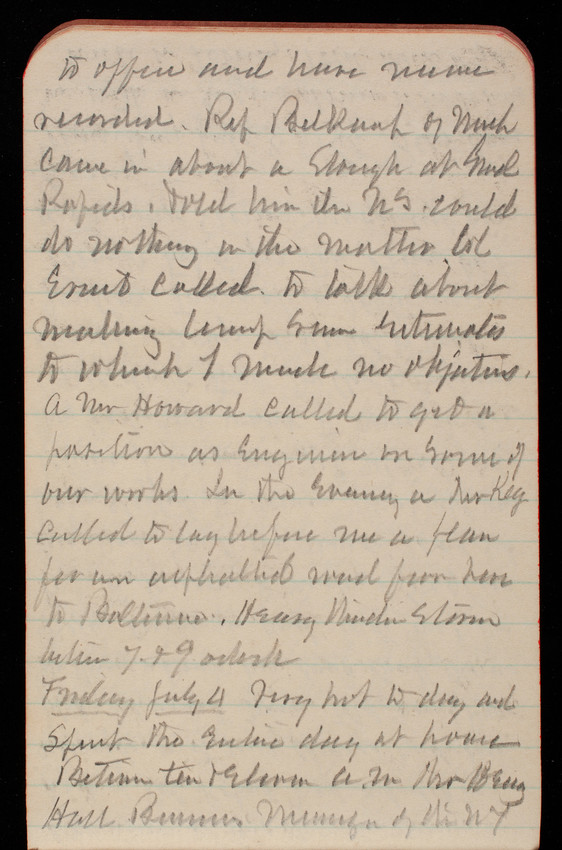 to office and have mine
recorded. Rep Belknap of Mich
came in about a Slough at Grand
Rapids. Told him the US. could
do nothing in the matter Col
Ernst called. to talk about
making lump sum Estimates
to which I made no objections.
A Mr Howard called to get a
position as Engineer on some of
our works. In the Evening a Mr Key
called to lay before me a plan
for an asphalted road from here
to Baltimore. Heavy Thunder Storm
between 7. & 9 oclock
Friday July 4 Very hot to day and
Spent the Entire day at home
Between ten & Eleven a.m. Mr
Hall Business Manager of the NY